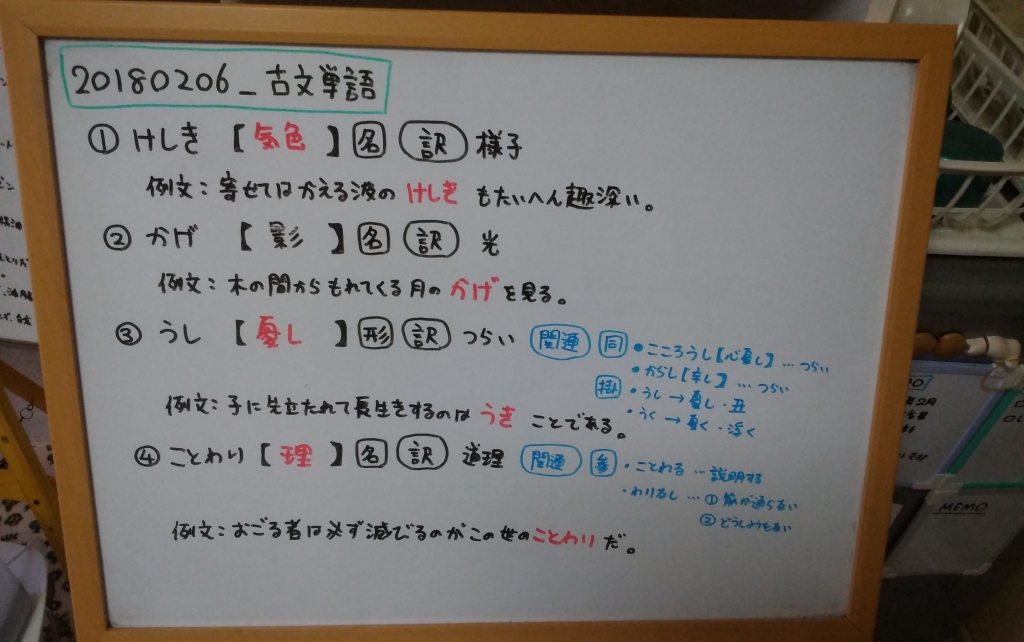 20180206_古文単語
① けしき 【気色】 名 訳 様子
例文：寄せてはかえる波の けしき もたいへん趣深い。
② かげ 【影】 名 訳 光
例文：木の間からもれてくる月の かげ を見る。
③ うし 【憂し】 形 訳 つらい 関連 同 ・こころうし【心憂し】…つらい
・からし【辛し】…つらい
掛 ・うし→憂し・丑
・うく→憂く・浮く
例文：子に先立たれて長生きするのは うき ことである。
④ ことわり【理】 名 訳 道理 関連 参 ・ことわる…説明する
・わりなし…① 筋が通らない
② どうしようもない
例文：おごる者は必ず滅びるのがこの世のことわりだ。
MEMO